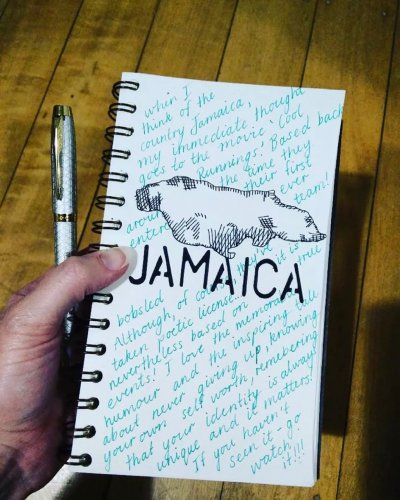 when I
think of the
country Jamaica,
my immediate thought
goes to the movie, 'Cool
Runnings'. Based back
around the time they
entered their first
ever
JAMAICA
bobsled team!
Although, of course they've
taken poetic license, it is
nevertheless based on true
events! I love the memorable
humour and the inspiring tale
about never giving up, knowing
your own self worth, remembering
that your identity is always
unique and it matters!
If you haven't
seen it - go
watch
it!!!